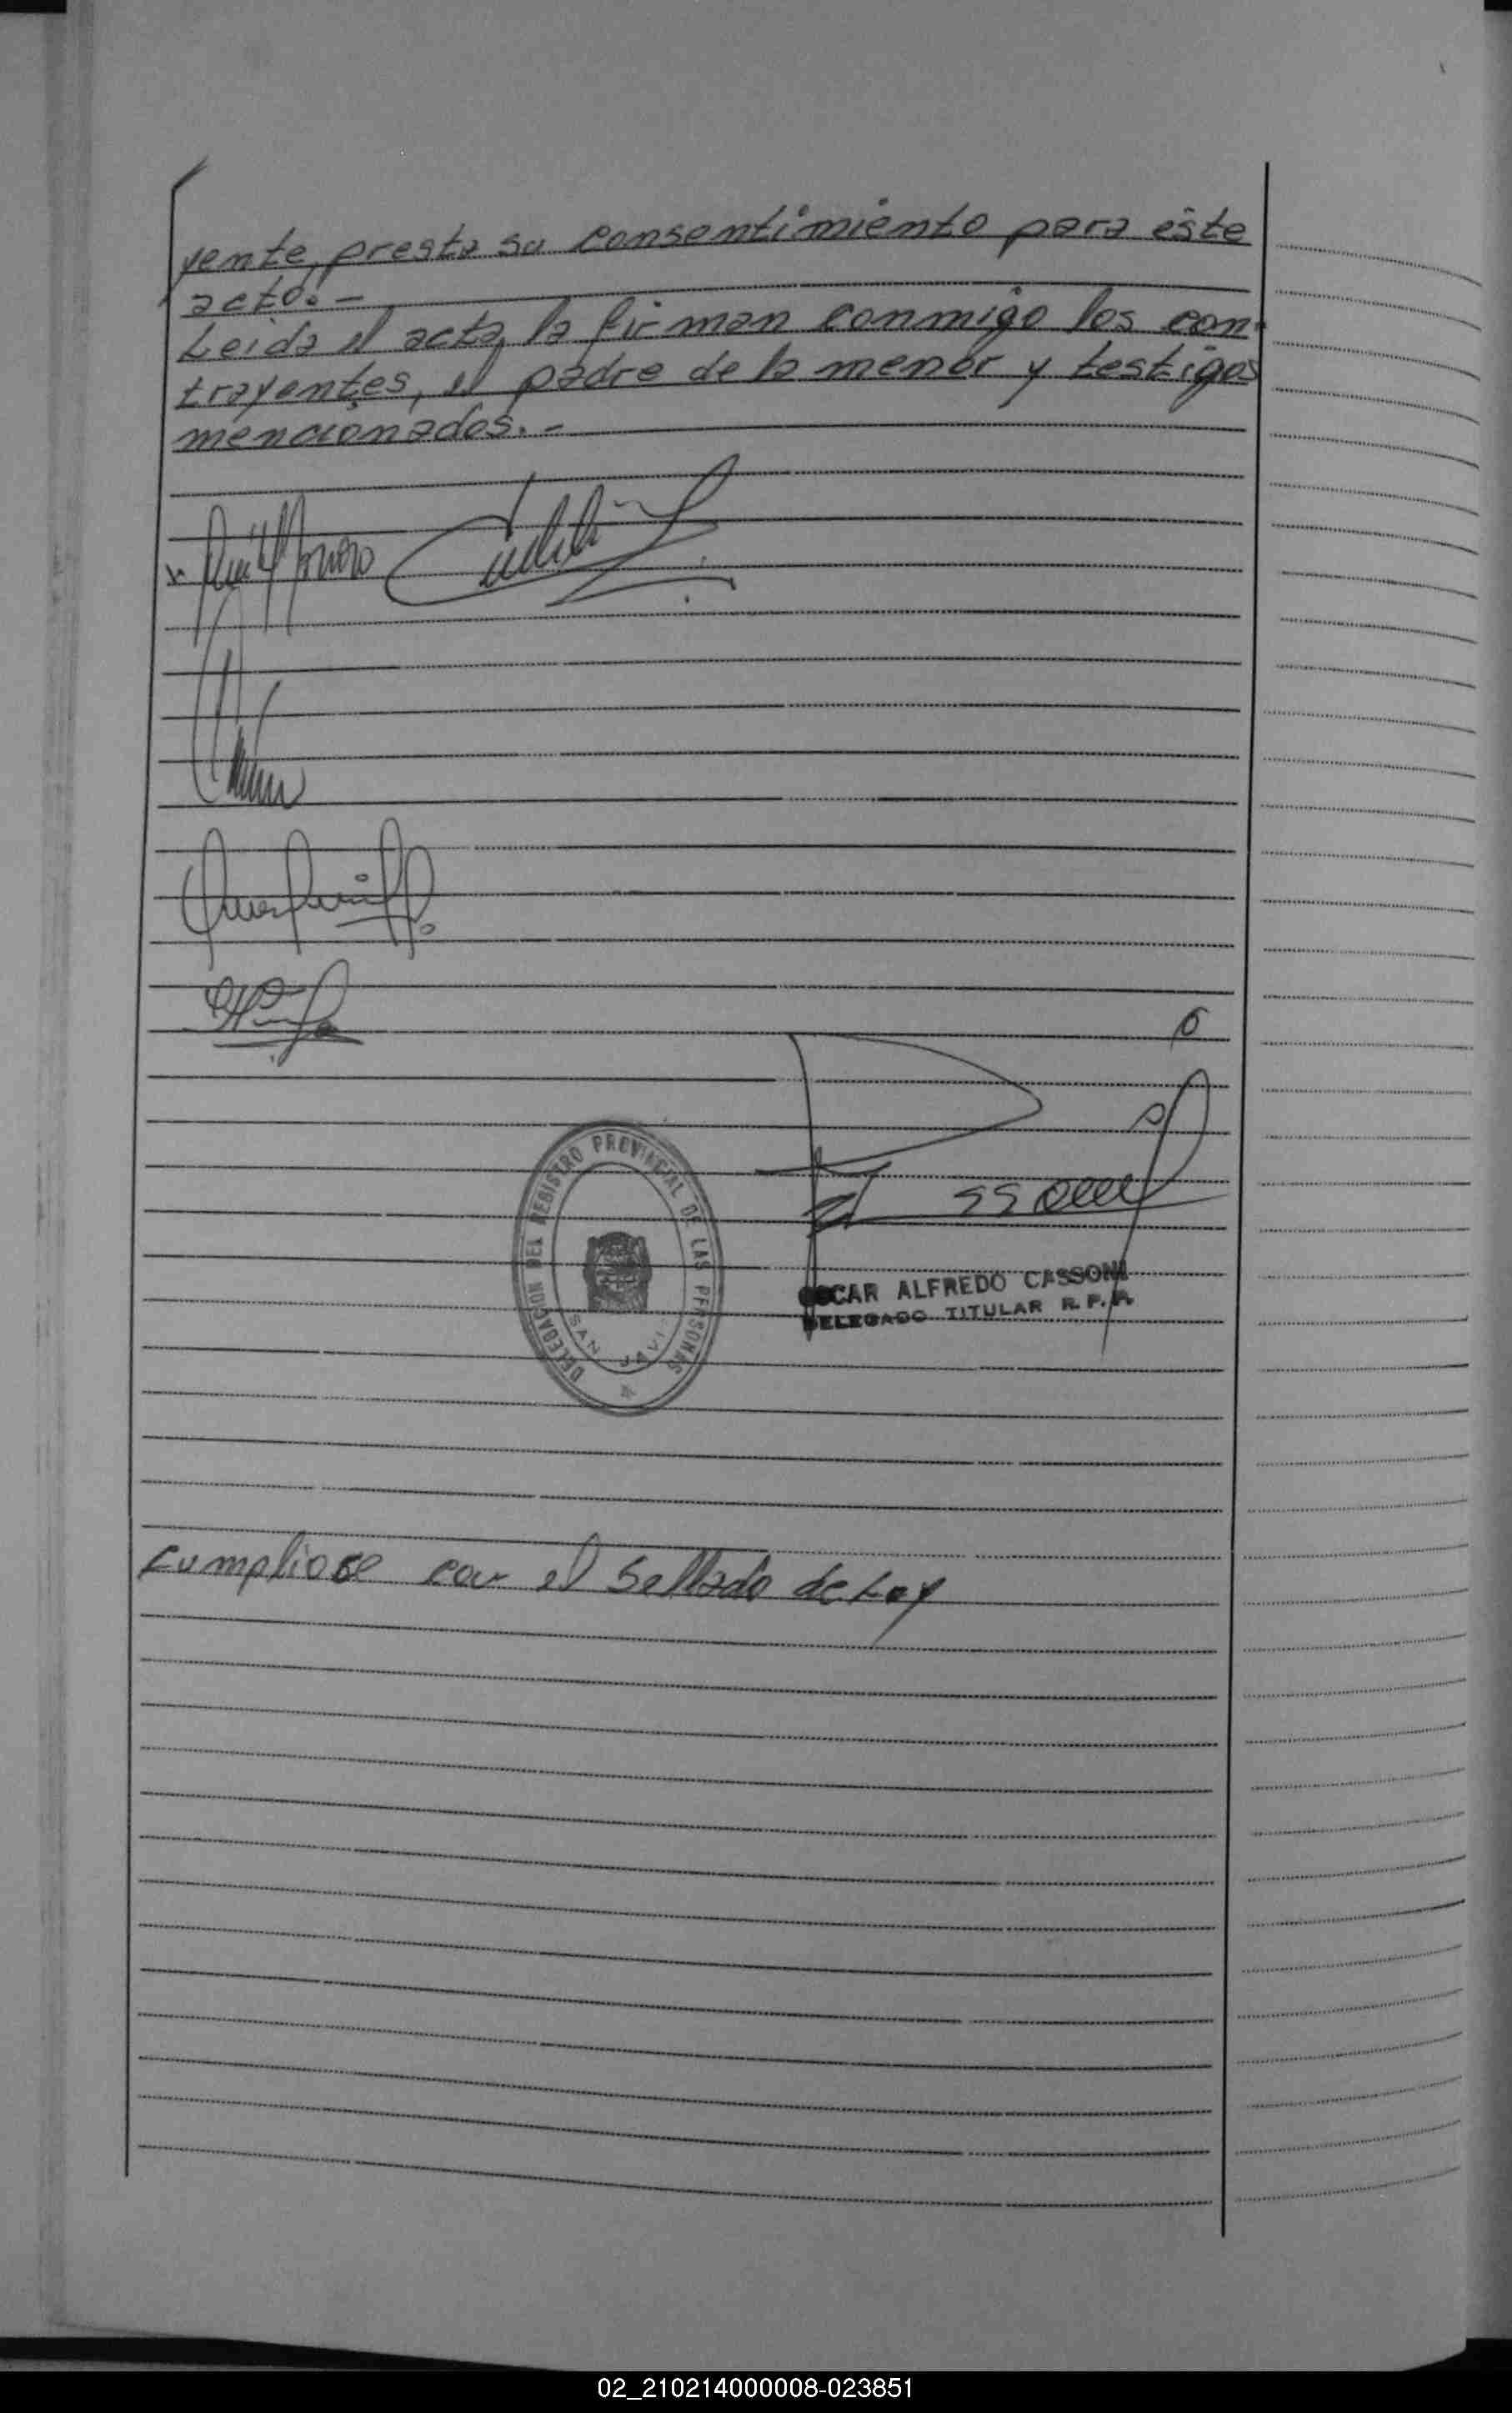 yente, presta su consentimiento para éste
acto.-
Leida el acta, la firman conmigo los con-
trayentes, el padre de la menor y testigos
mencionados.-
DELEGACION DEL REGISTRO PROVINCIAL DE LAS PERSONAS
SAN JAVI
OSCAR ALFREDO CASSONI
DELEGADO TITULAR R.P.P.
cumpliose con el Sellado de Ley
02_210214000008-023851